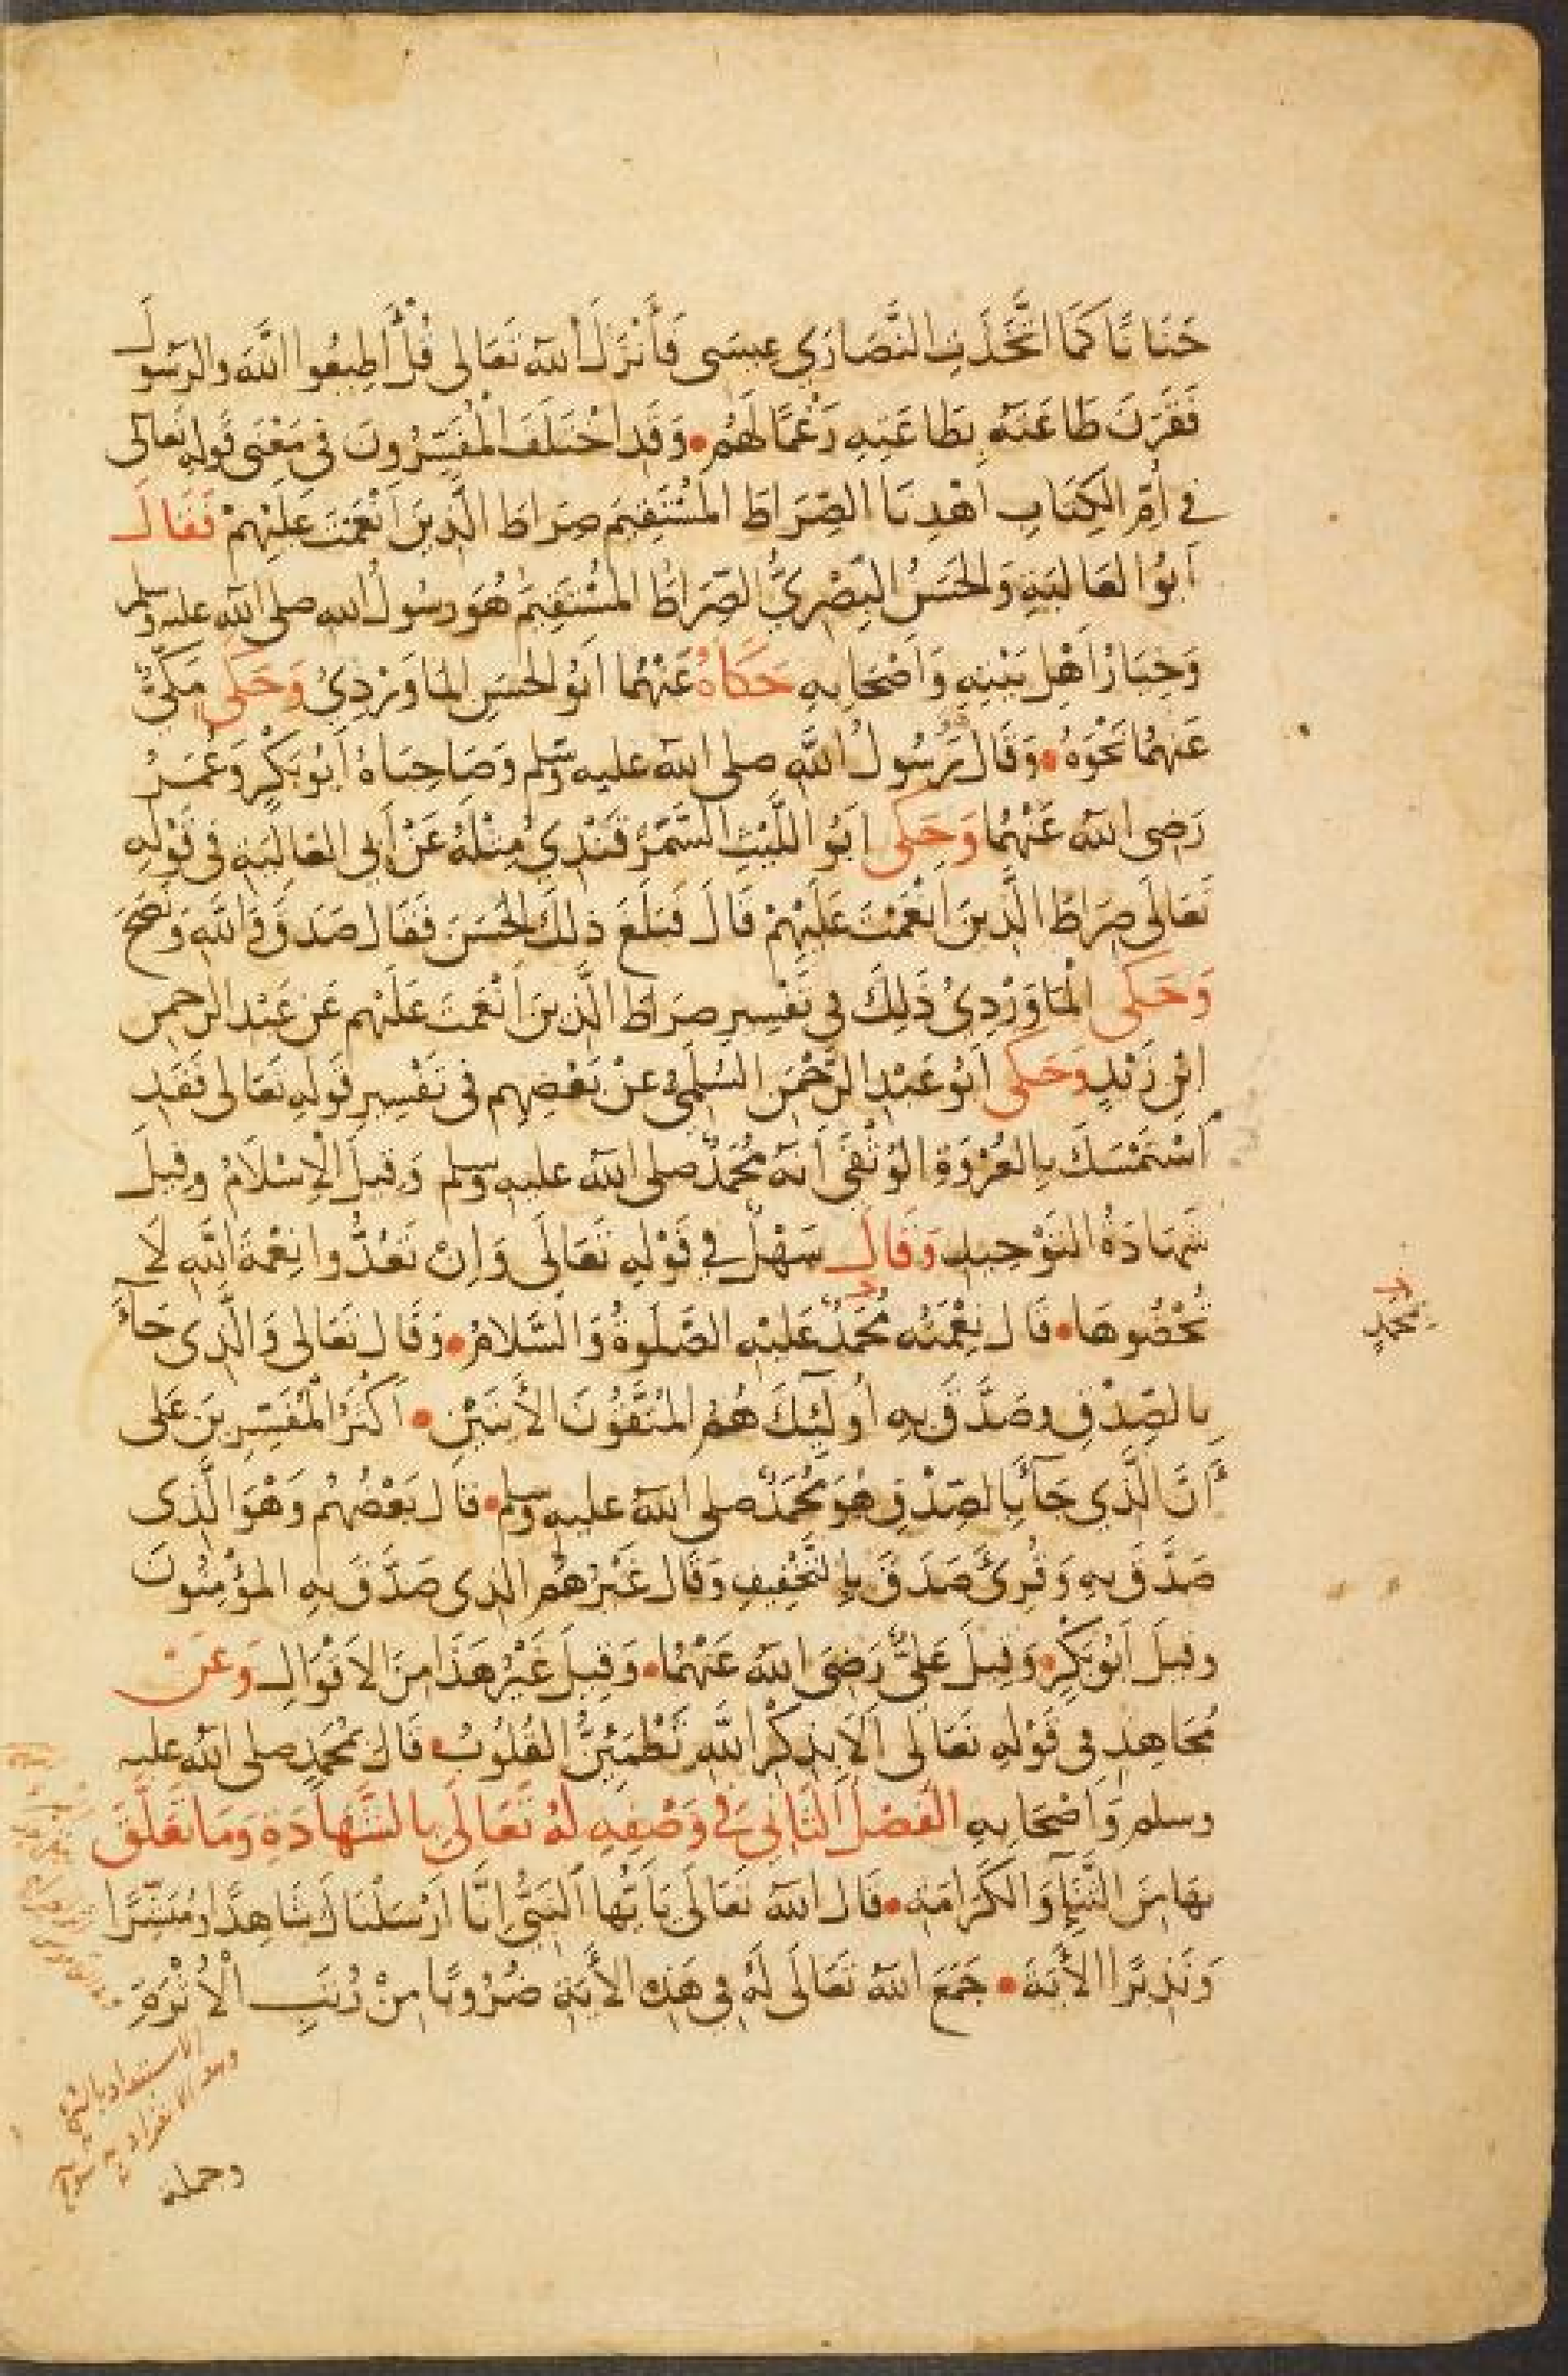 حَنَانًا كَمَا اتَّخَذَتِ النَّصَارَى عِيسَى فَأَنْزَلَ اللّٰهُ تَعَالى قُلْ أَطِيعُوا اللَّهَ وَالرَّسُولَ
فَقَرَنَ طَاعَتَهُ بِطَاعَتِهِ رَغْمًا لَهُمْ • وَقَدِ اخْتَلَفَ الْمُفَسِّرُونَ فِى مَعْنَى قَوْلِهِ تَعَالى
فِي أُمِّ الكِتَابِ اهْدِنَا الصِّرَاطَ المُسْتَقِيمَ صِرَاطَ الَّذِينَ أَنْعَمْتَ عَلَيْهِمْ فَقَالَ
أَبُو العَالِيَةِ وَالحَسَنُ البَصْرِيُّ الصِّرَاطُ المُسْتَقِيمُ هُوَ رَسُولُ اللهِ صلى الله عليه وسلم
وَخِيَارُ أَهْلِ بَيْتِهِ وَأَصْحَابِهِ حَكَاهُ عَنْهُمَا أَبُو الحَسَنِ المَاوَرْدِيُّ وَحَكَى مَكِّيٌّ
عَنْهُمَا نَحْوَهُ • وَقَالَ رَسُولُ اللَّهِ صلى الله عليه وسلم وَصَاحِبَاهُ أَبُو بَكْرٍ وَعُمَرُ
رَضِى اللّٰهُ عَنْهُمَا وَحَكَى أَبُو اللَّيْثِ السَّمَرْقَنْدِيُّ مِثْلَهُ عَنْ أَبِي العَالِيَةِ فِى قَوْلِهِ
تَعَالَى صِرَاطَ الَّذِينَ أَنْعَمْتَ عَلَيْهِمْ قَالَ فَبَلَغَ ذَلِكَ الحَسَنَ فَقَالَ صَدَقَ وَاللَّهِ وَنَصَحَ
وَحَكَى الْمَاوَرْدِيُّ ذَلِكَ فِي تَفْسِيرِ صِرَاطَ الَّذِينَ أَنْعَمْتَ عَلَيْهِم عَنْ عَبْدِ الرَّحْمنِ
ابْنِ زَيْدٍ وَحَكَى أَبُو عَبْدِ الرَّحْمَنِ السُّلَمِيُّ عَنْ بَعْضِهِم فِى تَفْسِيرِ قَوْلِهِ تَعَالى فَقَدِ
اسْتَمْسَكَ بِالعُرْوَةِ الوُثْقَى أَنَّهُ مُحَمَّدٌ صلى الله عليه وسلم وَقِيلَ الْإِسْلَامُ وقيلَ
شَهَادَةُ التَّوْحِيدِ وَقَالَ سَهْلٌ فِي قَوْلِهِ تَعَالَى وَإِنْ تَعُدُّوا نِعْمَةَ اللَّهِ لَا
تُحْصُوهَا • قَالَ نِعْمَتُه مُحَمَّدٌ عَلَيْهِ الصَّلوةُ وَالسَّلَامُ • وَقَالَ تَعَالى وَالَّذِى جَآءَ
بِالصِّدْقِ وصَدَّقَ بِهِ أُولَئِكَ هُمُ المُتَّقُونَ الأَيَتَيْنِ • أَكْثَرُ الْمُفَسِّرِينَ عَلى
أَنَّ الَّذِي جَآءَ بِالصِّدْقِ هُوَ مُحَمَّدٌ صلى الله عليه وسلم • قَالَ بَعْضُهُمْ وَهُوَ الَّذِى
صَدَّقَ بِهِ وَقُرِئَ صَدَقَ بِالتَّخْفِيفِ وَقَالَ غَيْرُهُم الَّذِى صَدَّقَ بِهِ المُؤْمِنُونَ
وقيلَ أَبُو بَكْرٍ • وَقِيلَ عَلِيٌّ رَضِىَ اللّٰهُ عَنْهُمَا • وَقِيلَ غَيْرُ هَذَا مِنَ الأَقْوَالِ وَعَنْ
مُجَاهِدٍ فى قَوْلِهِ تَعَالَى أَلَا بِذِكْرِ اللَّهِ تَطْمَئِنُّ القُلُوبُ • قَالَ بِمُحَمَّدٍ صلى الله عليه
وسلم وَأَصْحَابِهِ الفَصْلُ الثَّانِي فِي وَصْفِهِ لَهُ تَعَالَى بِالشَّهَادَةِ وَمَا تَعَلَّقَ
بِهَا مِنَ الثَّنَاءِ وَالكَرَامَةِ • قَالَ اللّٰهُ تَعَالَى يَاأَيُّهَا النَّبِيُّ إِنَّا أَرْسَلْنَاكَ شَاهِدًا وَمُبَشِّرًا
وَنَذِيرًا الأَيَةَ • جَمَعَ اللّٰهُ تَعَالَى لَهُ فِي هَذِهِ الأَيَةِ ضُرُوبًا مِنْ رُتَبِ الْأُثْرَةِ
بمحمدٍ
وجملة